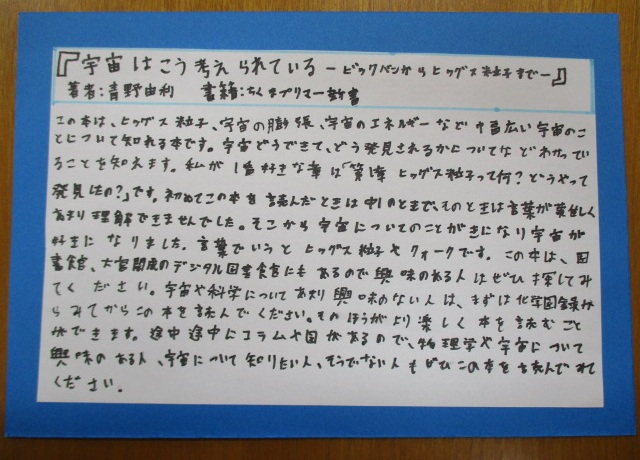 『宇宙はこう考えられている ービックバンからヒッグス粒子までー』
著者：青野由利　書籍：ちくまプリマー新書
この本は、ヒッグス粒子、宇宙の膨張、宇宙のエネルギーなど幅広い宇宙のこ
とについて知れる本です。宇宙どうできて、どう発見されるかについてなどわかってい
ることを知えます。私が1番好きな章は「第1章 ヒッグス粒子って何？どうやって
発見したの？」です。初めてこの本を読んだときは中1のときで、そのときは言葉が難しく
あまり理解できませんでした。そこから宇宙についてのことがきになり宇宙が
好きになりました。言葉でいうとヒッグス粒子やクォークです。この本は、図
書館、大宮開成のデジタル図書館にもあるので興味のある人はぜひ探してみ
てください。宇宙や科学についてあまり興味のない人は、まずは化学図録か
らみてからこの本を読んでください。そのほうがより楽しく本を読むこと
ができます。途中途中にコラムや図があるので、物理学や宇宙について
興味のある人、宇宙について知りたい人、そうでない人もぜひこの本を読んでみて
ください。